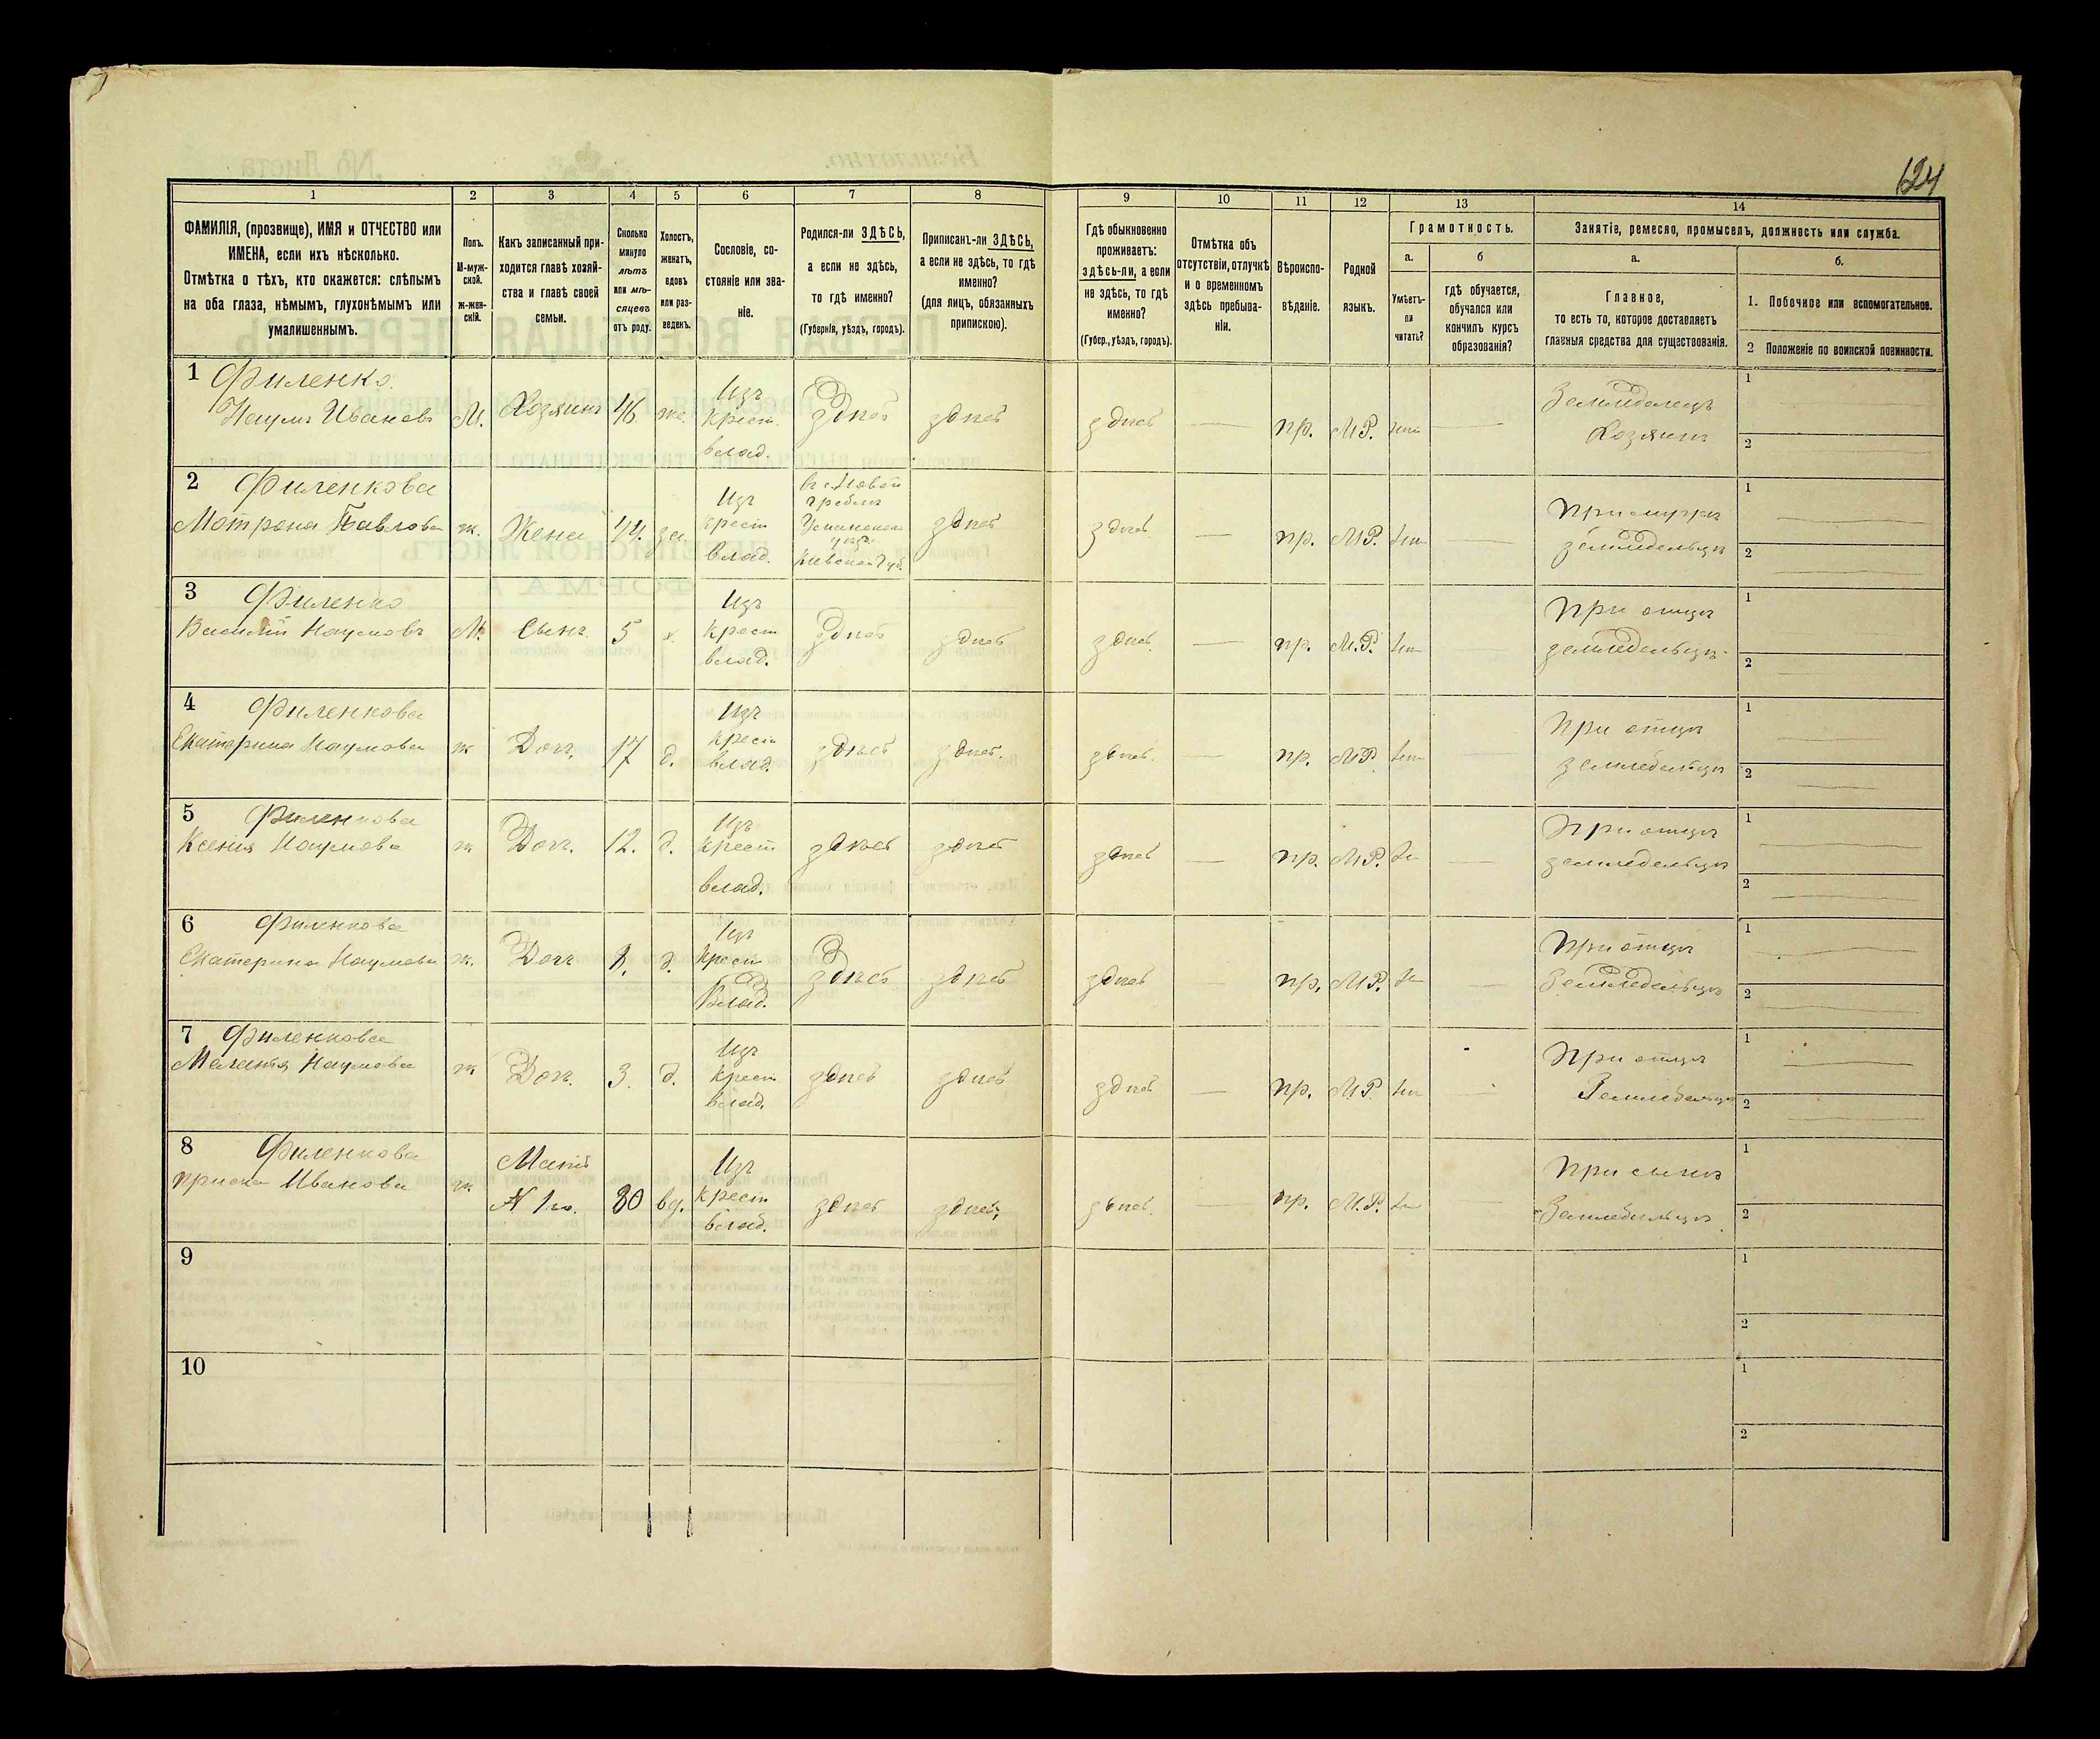 124
1 2 3 4 5 6 7 8 9 10 11 12 13 14
ФАМИЛІЯ, (прозвище), ИМЯ и ОТЧЕСТВО или
ИМЕНА, если ихъ нѣсколько.
Отмѣтка о тѣхъ, кто окажется: слѣпымъ
на оба глаза, нѣмымъ, глухонѣмымъ или
умалишеннымъ.
Полъ.
М-муж-
ской.
ж-жен-
скій.
Какъ записанный при-
ходится главѣ хозяй-
ства и главѣ своей
семьи.
Сколько
минуло
лѣтъ
или мѣ-
сяцевъ
отъ роду.
Холостъ,
женатъ,
вдовъ
или раз-
веденъ.
Сословіе, со-
стояніе или зва-
ніе.
Родился-ли ЗДѢСЬ,
а если не здѣсь,
то гдѣ именно?
(Губернія, уѣздъ, городъ).
Приписанъ-ли ЗДѢСЬ,
а если не здѣсь, то гдѣ
именно?
(для лицъ, обязанныхъ
припискою).
Гдѣ обыкновенно
проживаетъ:
здѣсь-ли, а если
не здѣсь, то гдѣ
именно?
(Губер., уѣздъ, городъ).
Отмѣтка объ
отсутствіи, отлучкѣ
и о временномъ
здѣсь пребыва-
ніи.
Вѣроиспо-
вѣданіе.
Родной
языкъ.
Грамотность.
а.
Умѣетъ-
ли
читать?
б
гдѣ обучается,
обучался или
кончилъ курсъ
образованія?
Занятіе, ремесло, промыселъ, должность или служба.
а.
Главное,
то есть то, которое доставляетъ
главныя средства для существованія.
б.
1. Побочное или вспомогательное.
2 Положеніе по воинской повинности.
1 Филенко
Наумъ Ивановъ М. Хозяинъ 46. же. Изъ крест. влад. здѣсь здѣсь здѣсь — пр. М.Р. — Земледѣлецъ Хозяинъ 1 2
2 Филенкова
Мотрона Павлова ж. Жена 44. за. Изъ крест влад. Уманскаго уѣзд. Кіевской губ. здѣсь здѣсь. — пр. М.Р. — При мужѣ земледѣльцѣ 1 2
3 Филенко
Василій Наумовъ М. Сынъ. 5 х. Изъ крест влад. здѣсь здѣсь здѣсь. — пр. М.Р. При отцѣ земледѣльцѣ 1 2
4 Филенкова
Екатерина Наумова ж Доч. 17 д. Изъ крест влад. здѣсь здѣсь. здѣсь. — пр. М.Р. При отцѣ земледѣльцѣ 1 2
5 Филенкова
Ксенія Наумова ж Доч. 12. д. Изъ крест влад. здѣсь здѣсь здѣсь — пр. М.Р. — При отцѣ земледѣльцѣ 1 2
6 Филенкова
Екатерина Наумова ж. Доч д. Изъ крест влад. здѣсь здѣсь здѣсь пр. М.Р. — При отцѣ Земледѣльцѣ 1 2
7 Филенкова
Маланья Наумова ж Доч. 3. д. Изъ крест влад. здѣсь здѣсь здѣсь — пр. М.Р. При отцѣ Земледѣльцѣ 1 2
8 Филенкова
Приска Иванова ж. Мать N 1го. 80 вд. Изъ крест влад. здѣсь здѣсь, здѣсь. — пр. М.Р. — При сынѣ Земледѣльцѣ 1 2
9 1 2
10 1 2